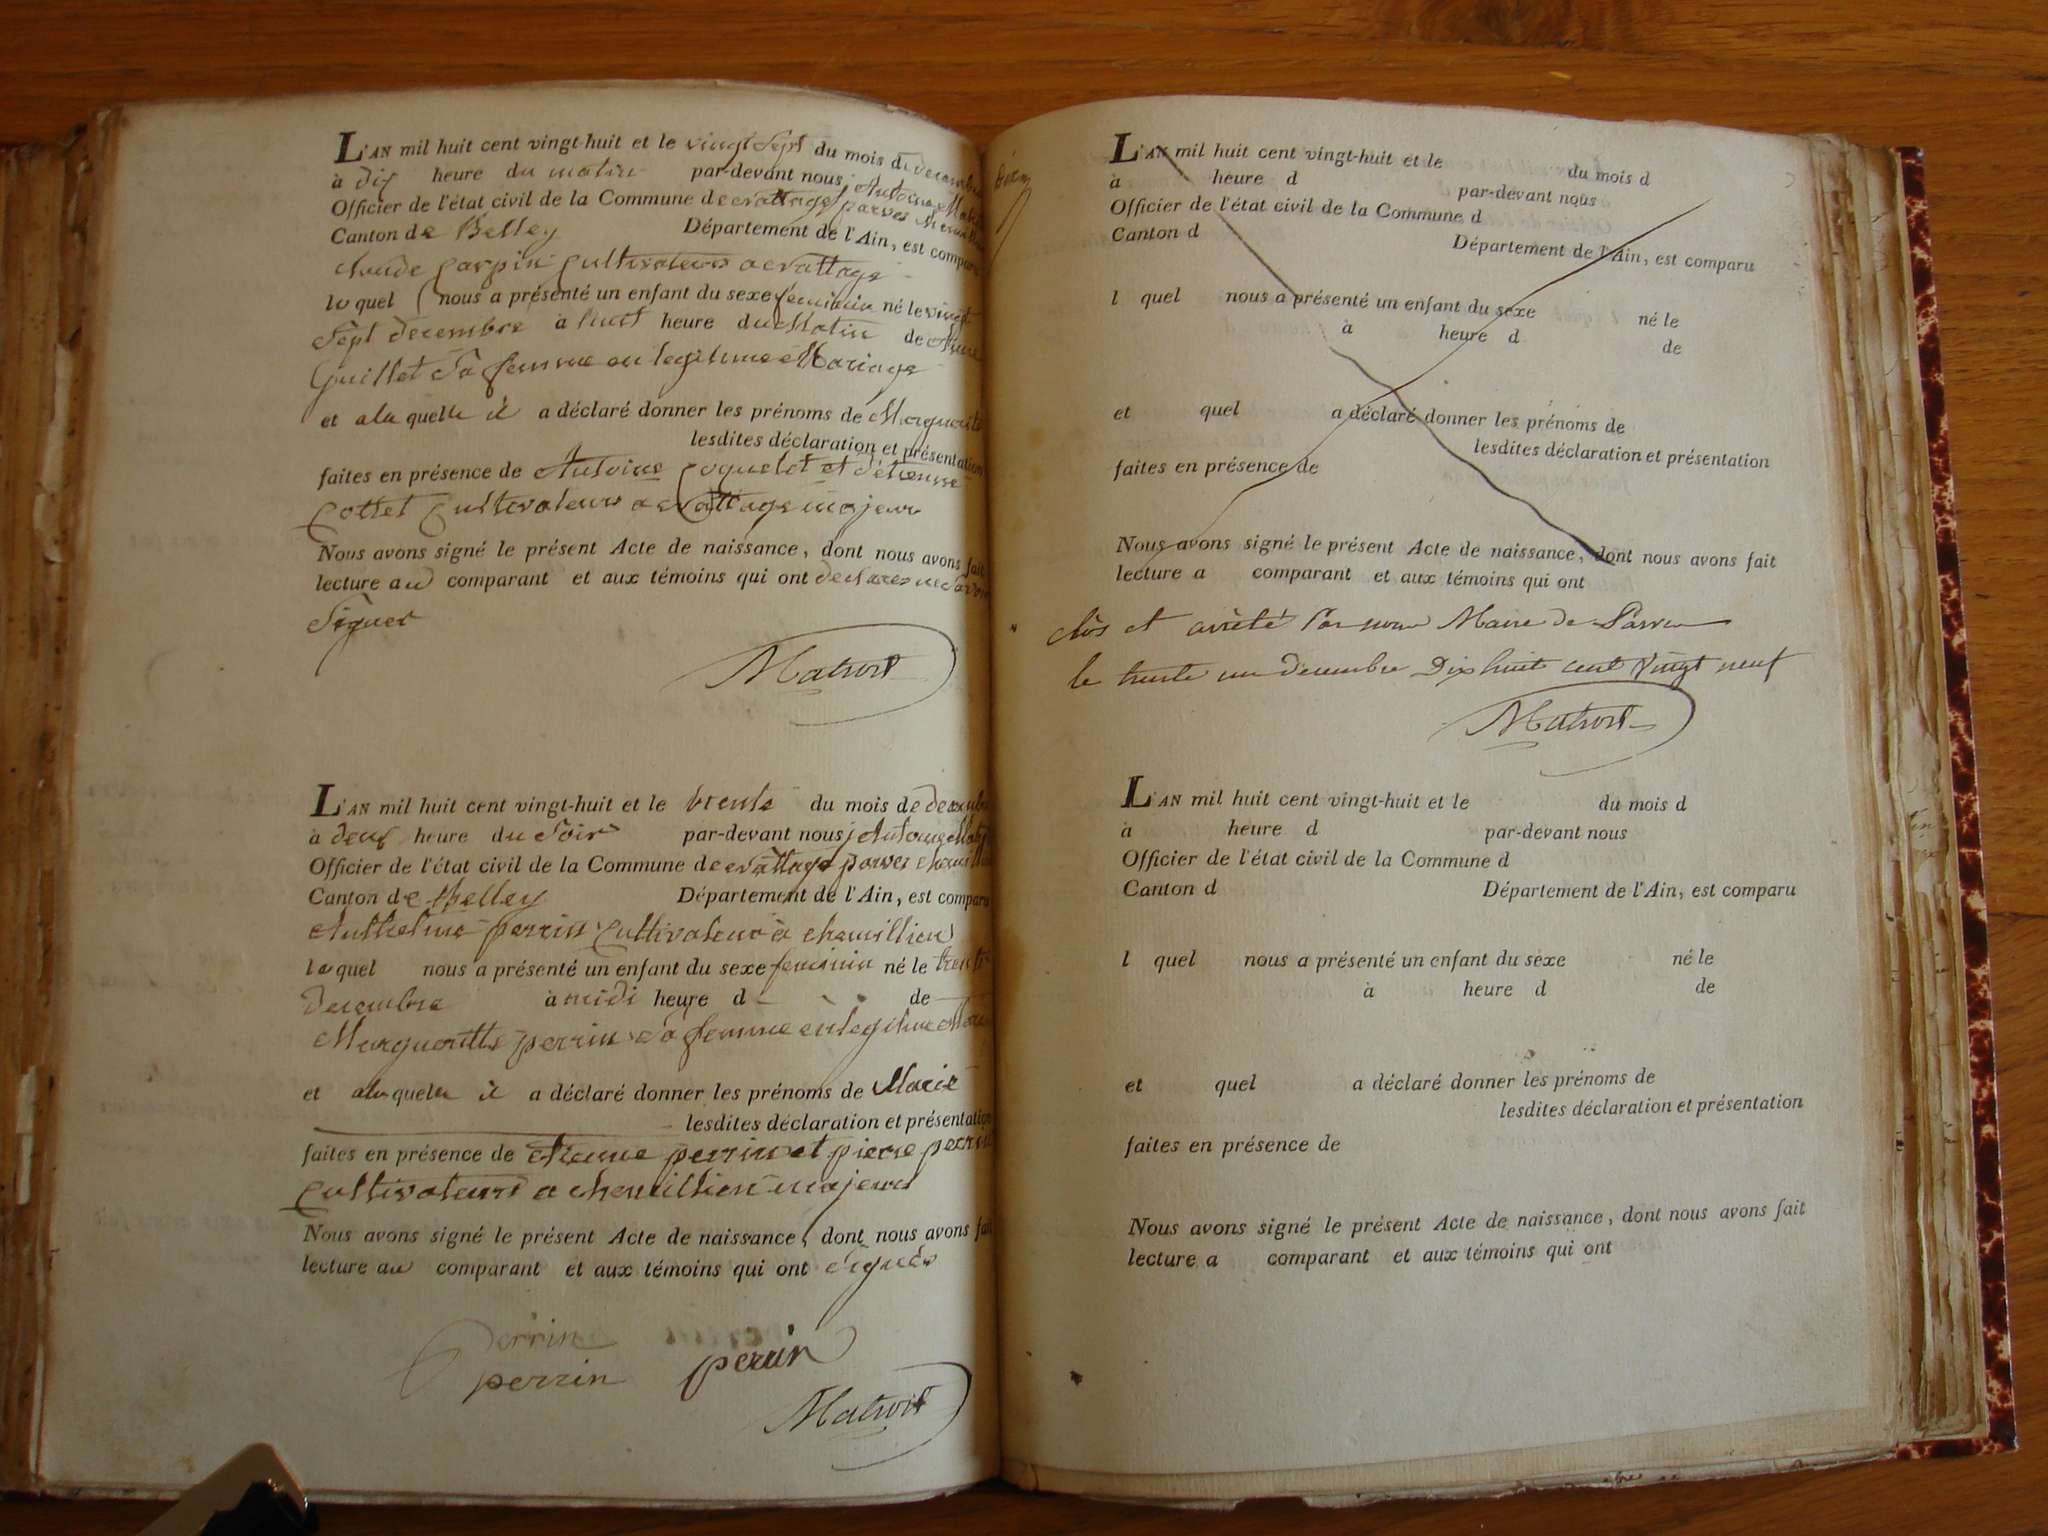 L'AN mil huit cent vingt-huit et le vingt Sept du mois de decembre
à dix heure du matin par-devant nous, Antoine
Officier de l'état civil de la Commune de parves
Canton de Belley Département de l'Ain, est comparu
claude carpin Cultivateur a
le quel nous a présenté un enfant du sexe feminin né le vingt
Sept decembre à huit heure du Matin de Anne
Guillet Sa femme en legitime Mariage
et a la quelle il a déclaré donner les prénoms de Marguerite
lesdites déclaration et présentation
faites en présence de Antoine Coquelet et d'étienne
Cottet Cultivateurs a majeur
Nous avons signé le présent Acte de naissance, dont nous avons fait
lecture au comparant et aux témoins qui ont declares ne Savoir
Signer
L'AN mil huit cent vingt-huit et le trente du mois de decembre
à deux heure du Soir par-devant nous, Antoine
Officier de l'état civil de la Commune de parves
Canton de Belley Département de l'Ain, est comparu
Anthelme perrin Cultivateur à chemillieu
le quel nous a présenté un enfant du sexe feminin né le trente
decembre à midi heure d de
Margueritte perrin Sa femme en legitime
et a la quelle il a déclaré donner les prénoms de Marie
lesdites déclaration et présentation
faites en présence de étienne perrin et pierre perrin
Cultivateurs a chemillieu majeurs
Nous avons signé le présent Acte de naissance, dont nous avons fait
lecture au comparant et aux témoins qui ont signés
perrin
perrin perrin
L'AN mil huit cent vingt-huit et le du mois d
à heure d par-devant nous
Officier de l'état civil de la Commune d
Canton d Département de l'Ain, est comparu
l quel nous a présenté un enfant du sexe né le
à heure d de
et quel a déclaré donner les prénoms de
lesdites déclaration et présentation
faites en présence de
Nous avons signé le présent Acte de naissance, dont nous avons fait
lecture a comparant et aux témoins qui ont
clos et arrêté Par nous Maire de Parves
le trente un decembre Dix huit cent vingt neuf
L'AN mil huit cent vingt-huit et le du mois d
à heure d par-devant nous
Officier de l'état civil de la Commune d
Canton d Département de l'Ain, est comparu
l quel nous a présenté un enfant du sexe né le
à heure d de
et quel a déclaré donner les prénoms de
lesdites déclaration et présentation
faites en présence de
Nous avons signé le présent Acte de naissance, dont nous avons fait
lecture a comparant et aux témoins qui ont